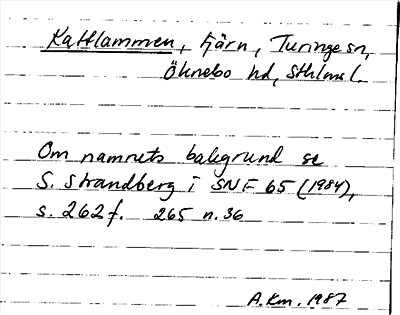 Kattlammen, tjärn, Turinge sn,
Öknebo hd, Sthlms l.
Om namnets bakgrund se
S. Strandberg i SNF 65 (1984),
s. 262 f. 265 n. 36
A.Km. 1987